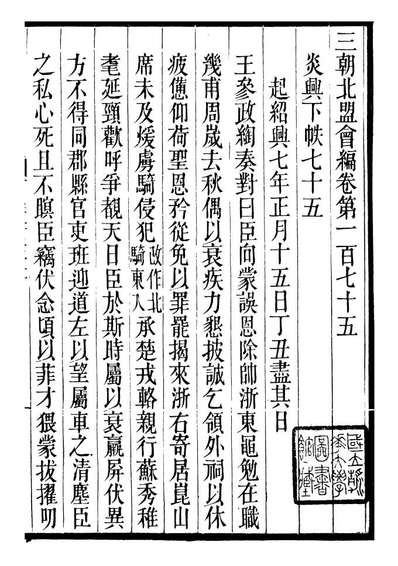 三朝北盟會編卷第一百七十五
炎興下帙七十五
起紹興七年正月十五日丁丑盡其日
王參政綯奏對曰臣向蒙誤恩除帥浙東黽勉在職
幾甫周歲去秋偶以衰疾力懇披誠乞領外祠以休
疲憊仰荷聖恩矜從免以罪罷揭來浙右寄居崑山
席未及煖虜騎侵犯
改作北
騎東入
承楚戎輅親行蘇秀稚
耄延頸歡呼爭覩天日臣於斯時屬以衰羸屏伏異
方不得同郡縣官吏班迎道左以望屬車之清塵臣
之私心死且不瞑臣竊伏念頃以菲才猥蒙拔擢叨